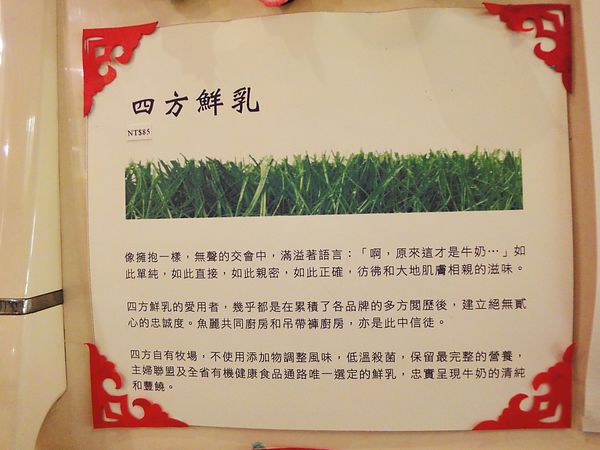 四方鮮乳
NT$85
像擁抱一樣，無聲的交會中，滿溢著語言：「啊，原來這才是牛奶…」如
此單純，如此直接，如此親密，如此正確，彷彿和大地肌膚相親的滋味。
四方鮮乳的愛用者，幾乎都是在累積了各品牌的多方閱歷後，建立絕無貳
心的忠誠度。魚麗共同廚房和吊帶褲廚房，亦是此中信徒。
四方自有牧場，不使用添加物調整風味，低溫殺菌，保留最完整的營養，
主婦聯盟及全省有機健康食品通路唯一選定的鮮乳，忠實呈現牛奶的清純
和豐饒。